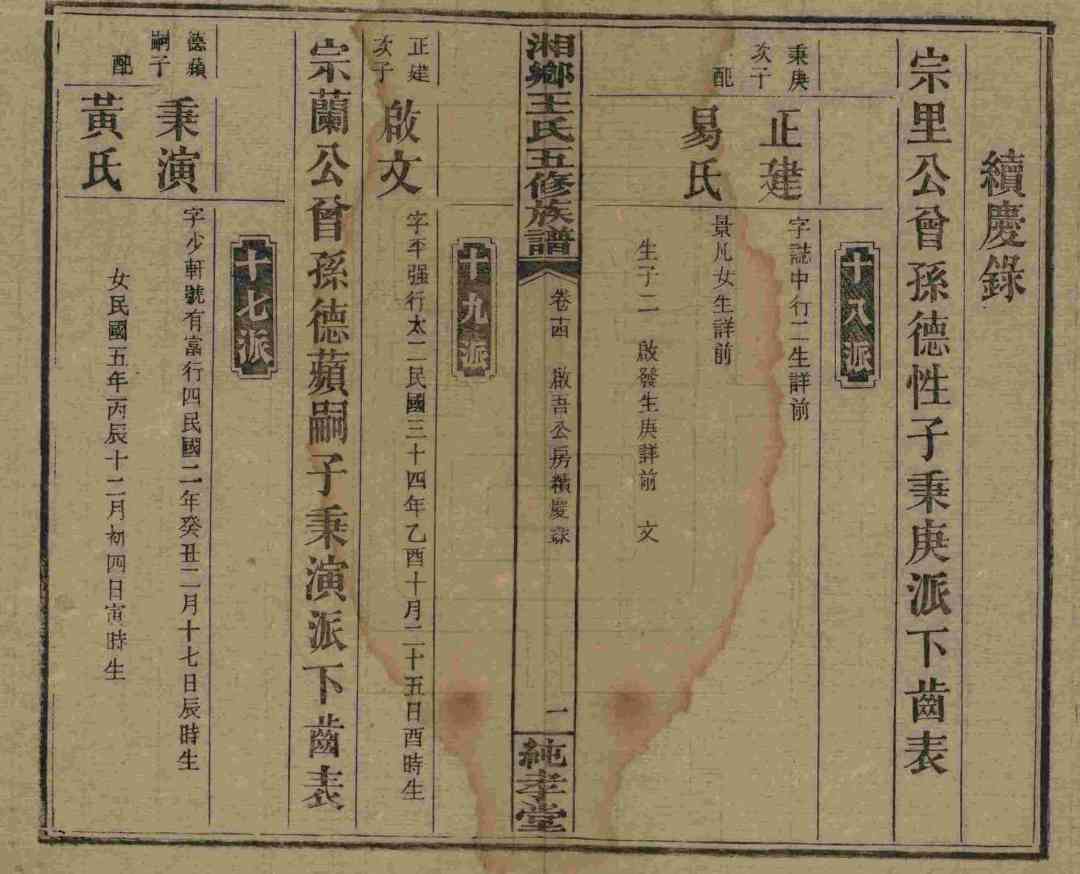 續慶錄
宗里公曾孫德性子秉庚派下齒表
十八派
秉庚
次子
正建
字誌中行二生詳前
配
易氏
景凡女生詳前
生子二 啟發生庚詳前 文
湘鄉王氏五修族譜
卷十四 啟吾公房續慶錄
一
純孝堂
十九派
正建
次子
啟文
字平强行太二民國三十四年乙酉十月二十五日酉時生
宗蘭公曾孫德蘋嗣子秉演派下齒表
十七派
德蘋
嗣子
秉演
字少軒號有富行四民國二年癸丑二月十七日辰時生
配
黃氏
女民國五年丙辰十二月初四日寅時生